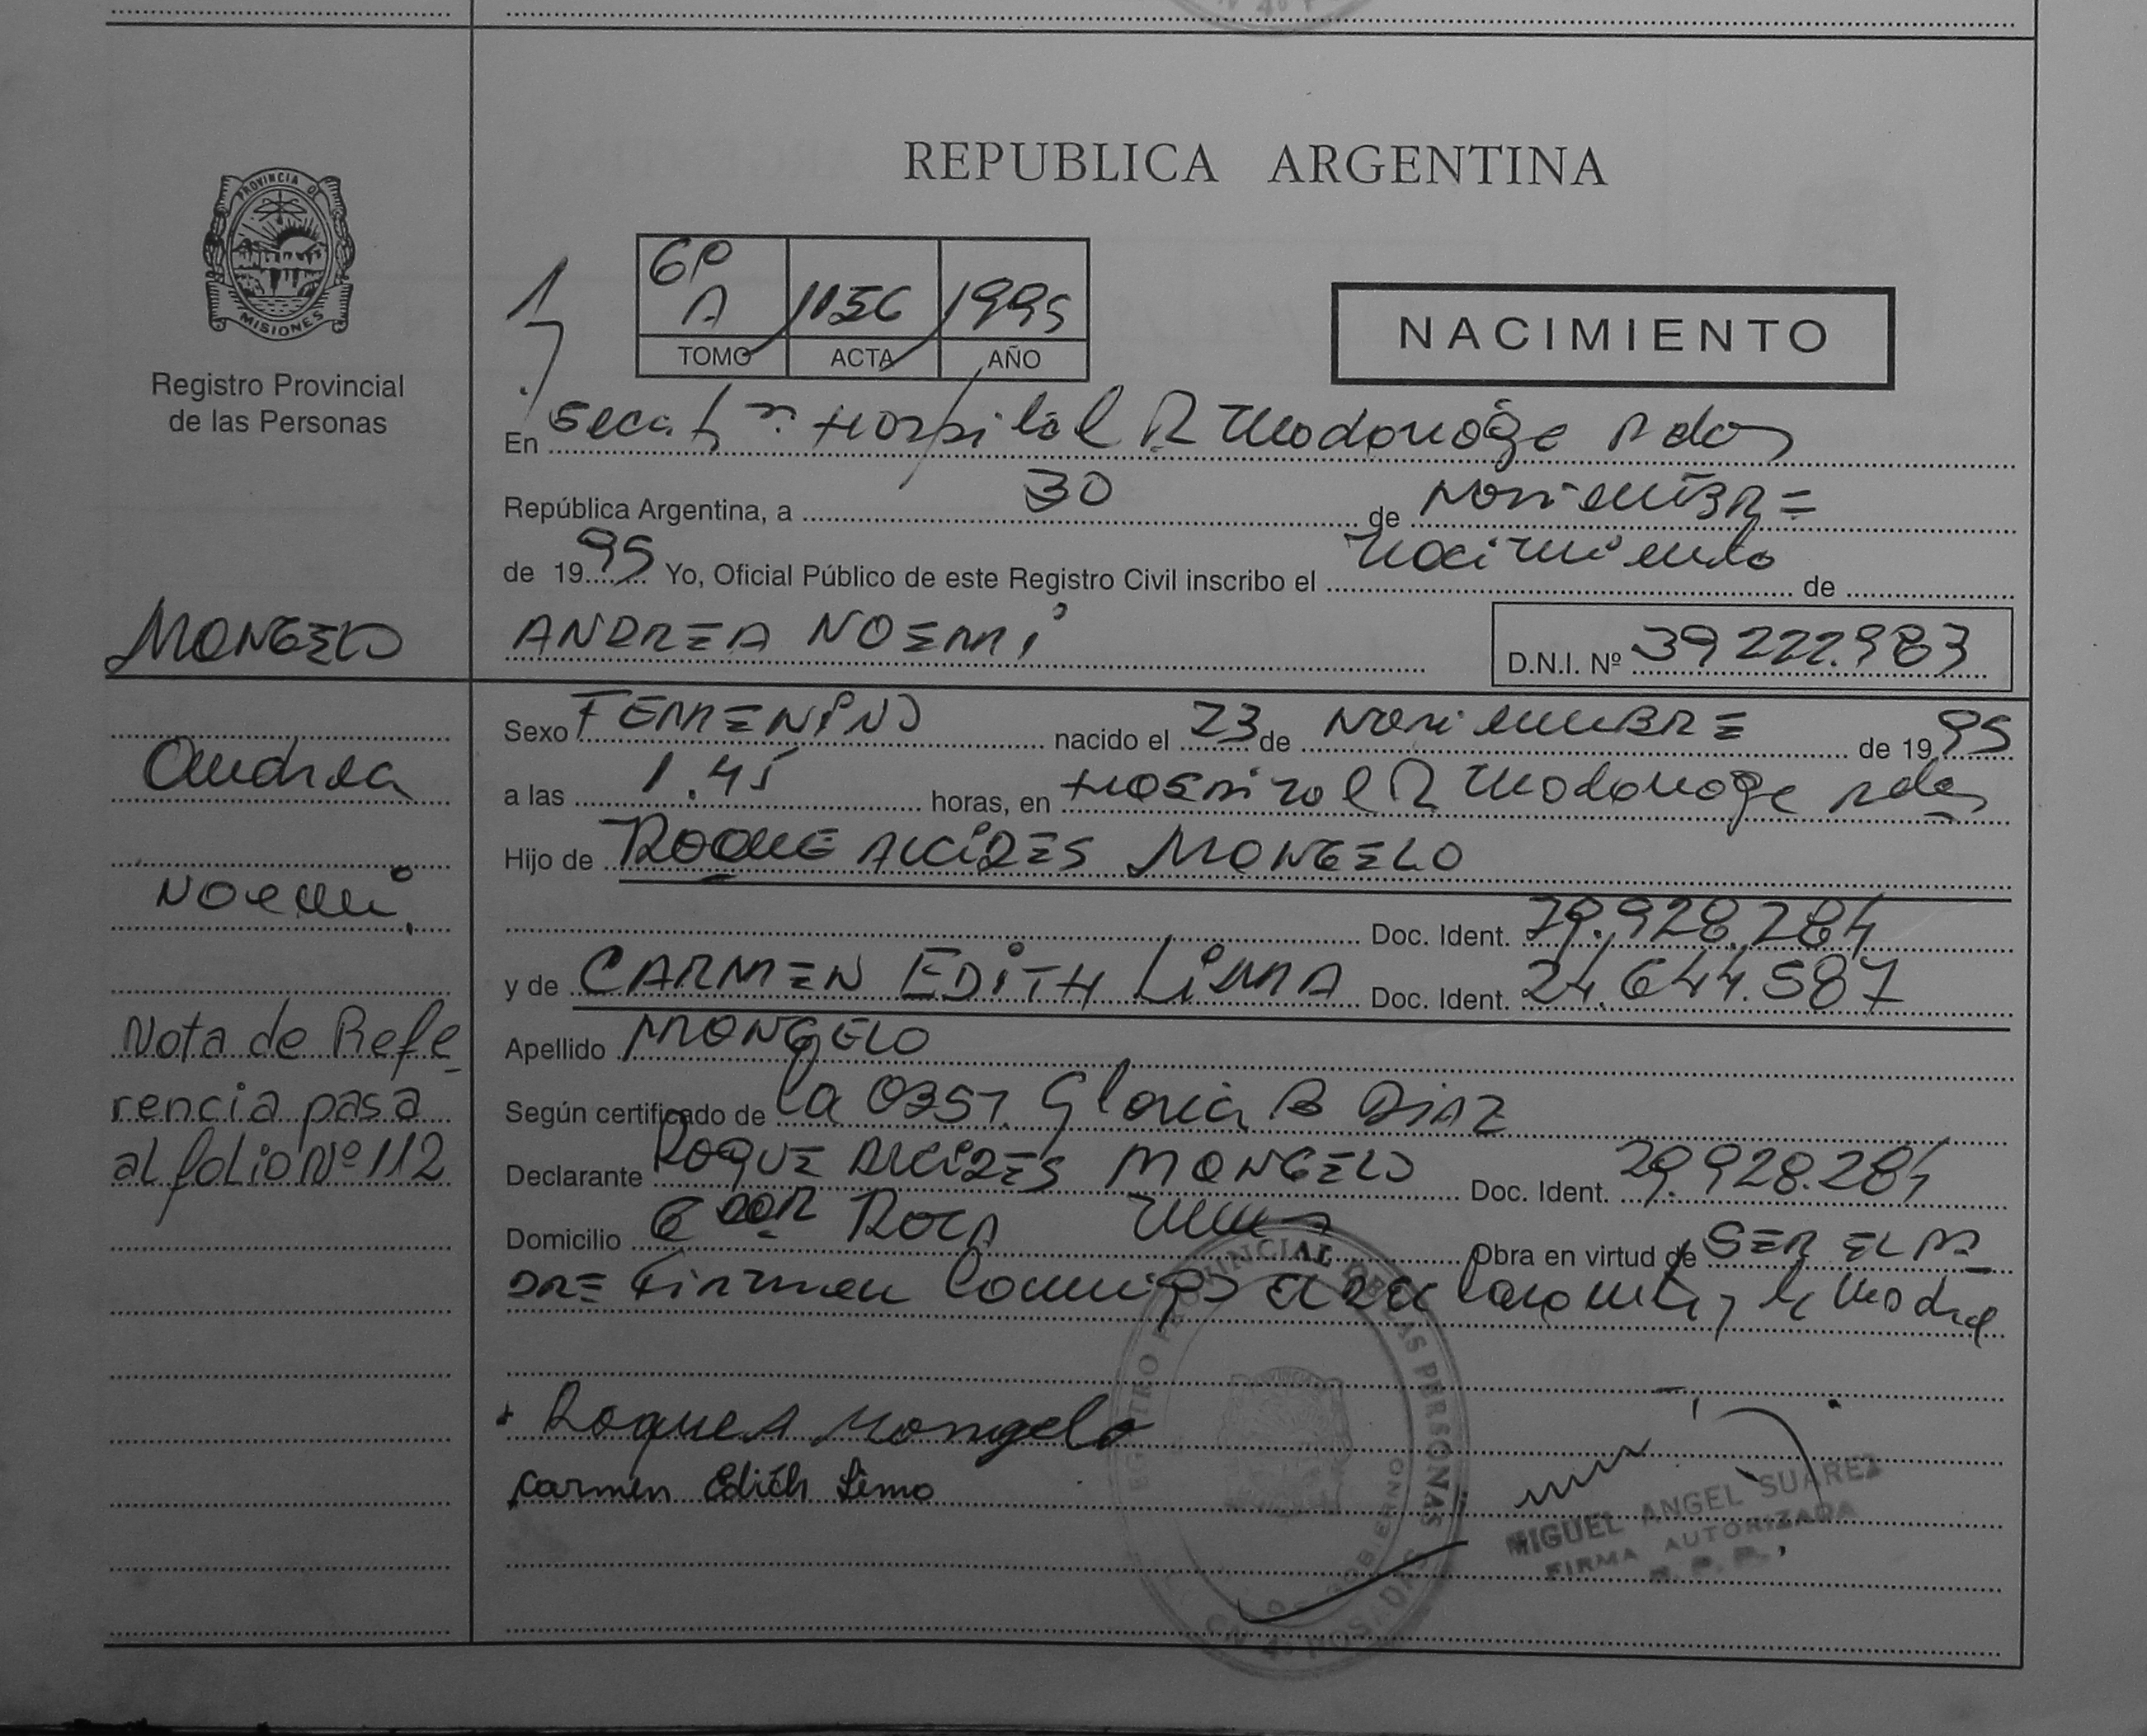 REPUBLICA ARGENTINA
PROVINCIA DE
MISIONES
Registro Provincial
de las Personas
6P
A 1156 1995
TOMO ACTA AÑO
NACIMIENTO
En Hospital R Madariaga Pdas
República Argentina, a 30 de NoviemBRE
de 1995 Yo, Oficial Público de este Registro Civil inscribo el nacimiento de
MONGELO ANDREA NOEMI D.N.I. Nº 39.222.983
Sexo FEMENINO nacido el 23 de NoviemBRE de 1995
Andrea
a las 1.45 horas, en Hospital R Madariaga Pdas
Hijo de ROQUE ALCIDES MONGELO
Noemi.
Doc. Ident. 29.928.284
y de CARMEN EDITH LIMA Doc. Ident. 24.644.587
Nota de Refe
rencia pasa
al folio Nº 112
Apellido MONGELO
Según certificado de la 0357. Gloria B DIAZ
Declarante ROQUE ALCIDES MONGELO Doc. Ident. 29.928.284
Domicilio GDOR ROCA Mnes Obra en virtud de SER EL PA
DRE Firman conmigo el declarante y la madre
Roque A Mongelo
Carmen Edith Lima
REGISTRO PROVINCIAL DE LAS PERSONAS
GOBIERNO
POSADAS
MIGUEL ANGEL SUAREZ
FIRMA AUTORIZADA
R. P. P.